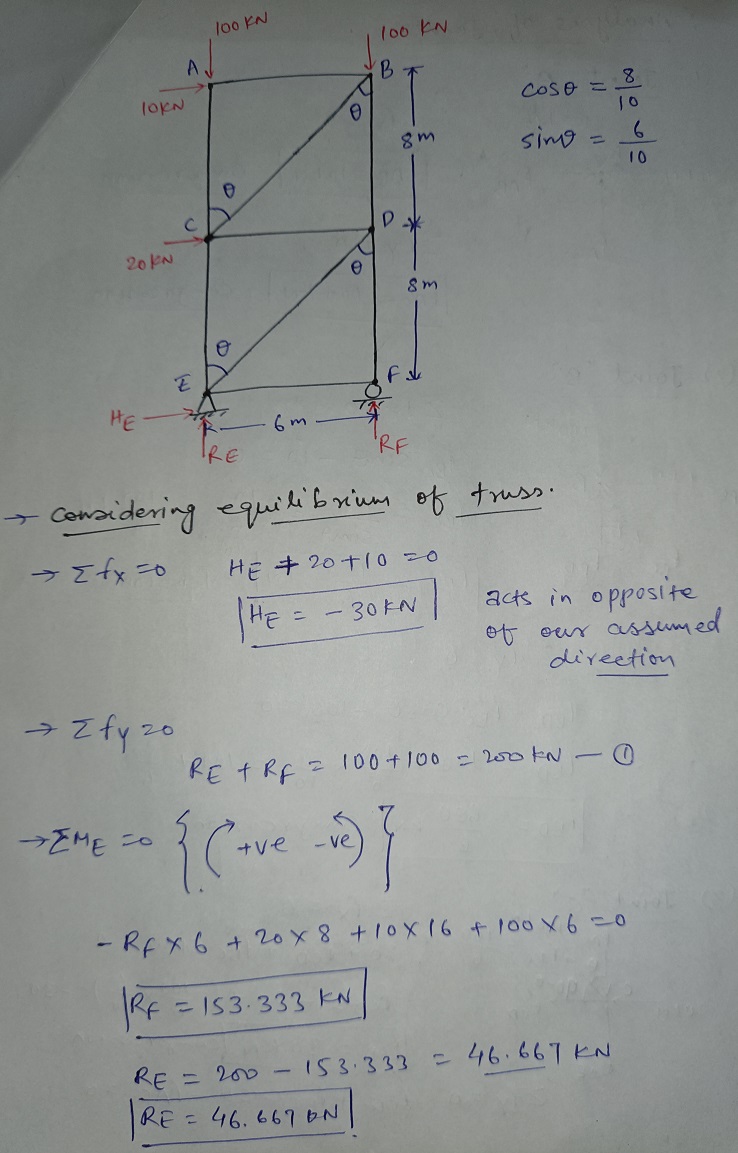 100 KN
100 KN
A
B
10KN
θ
8m
cosθ = 8/10
sinθ = 6/10
θ
C
D
20KN
θ
8m
θ
E
F
HE
6m
RE
RF
→ Considering equilibrium of truss.
→ Σfx=0 HE + 20+10 =0
HE = - 30KN
acts in opposite
of our assumed
direction
→ Σfy=0
RE + RF = 100+100 = 200 KN — ①
→ΣME =0 { ( +ve -ve) }
- RF x 6 + 20 x 8 + 10 x 16 + 100 x 6 =0
RF = 153.333 KN
RE = 200 - 153.333 = 46.667 KN
RE = 46.667 KN